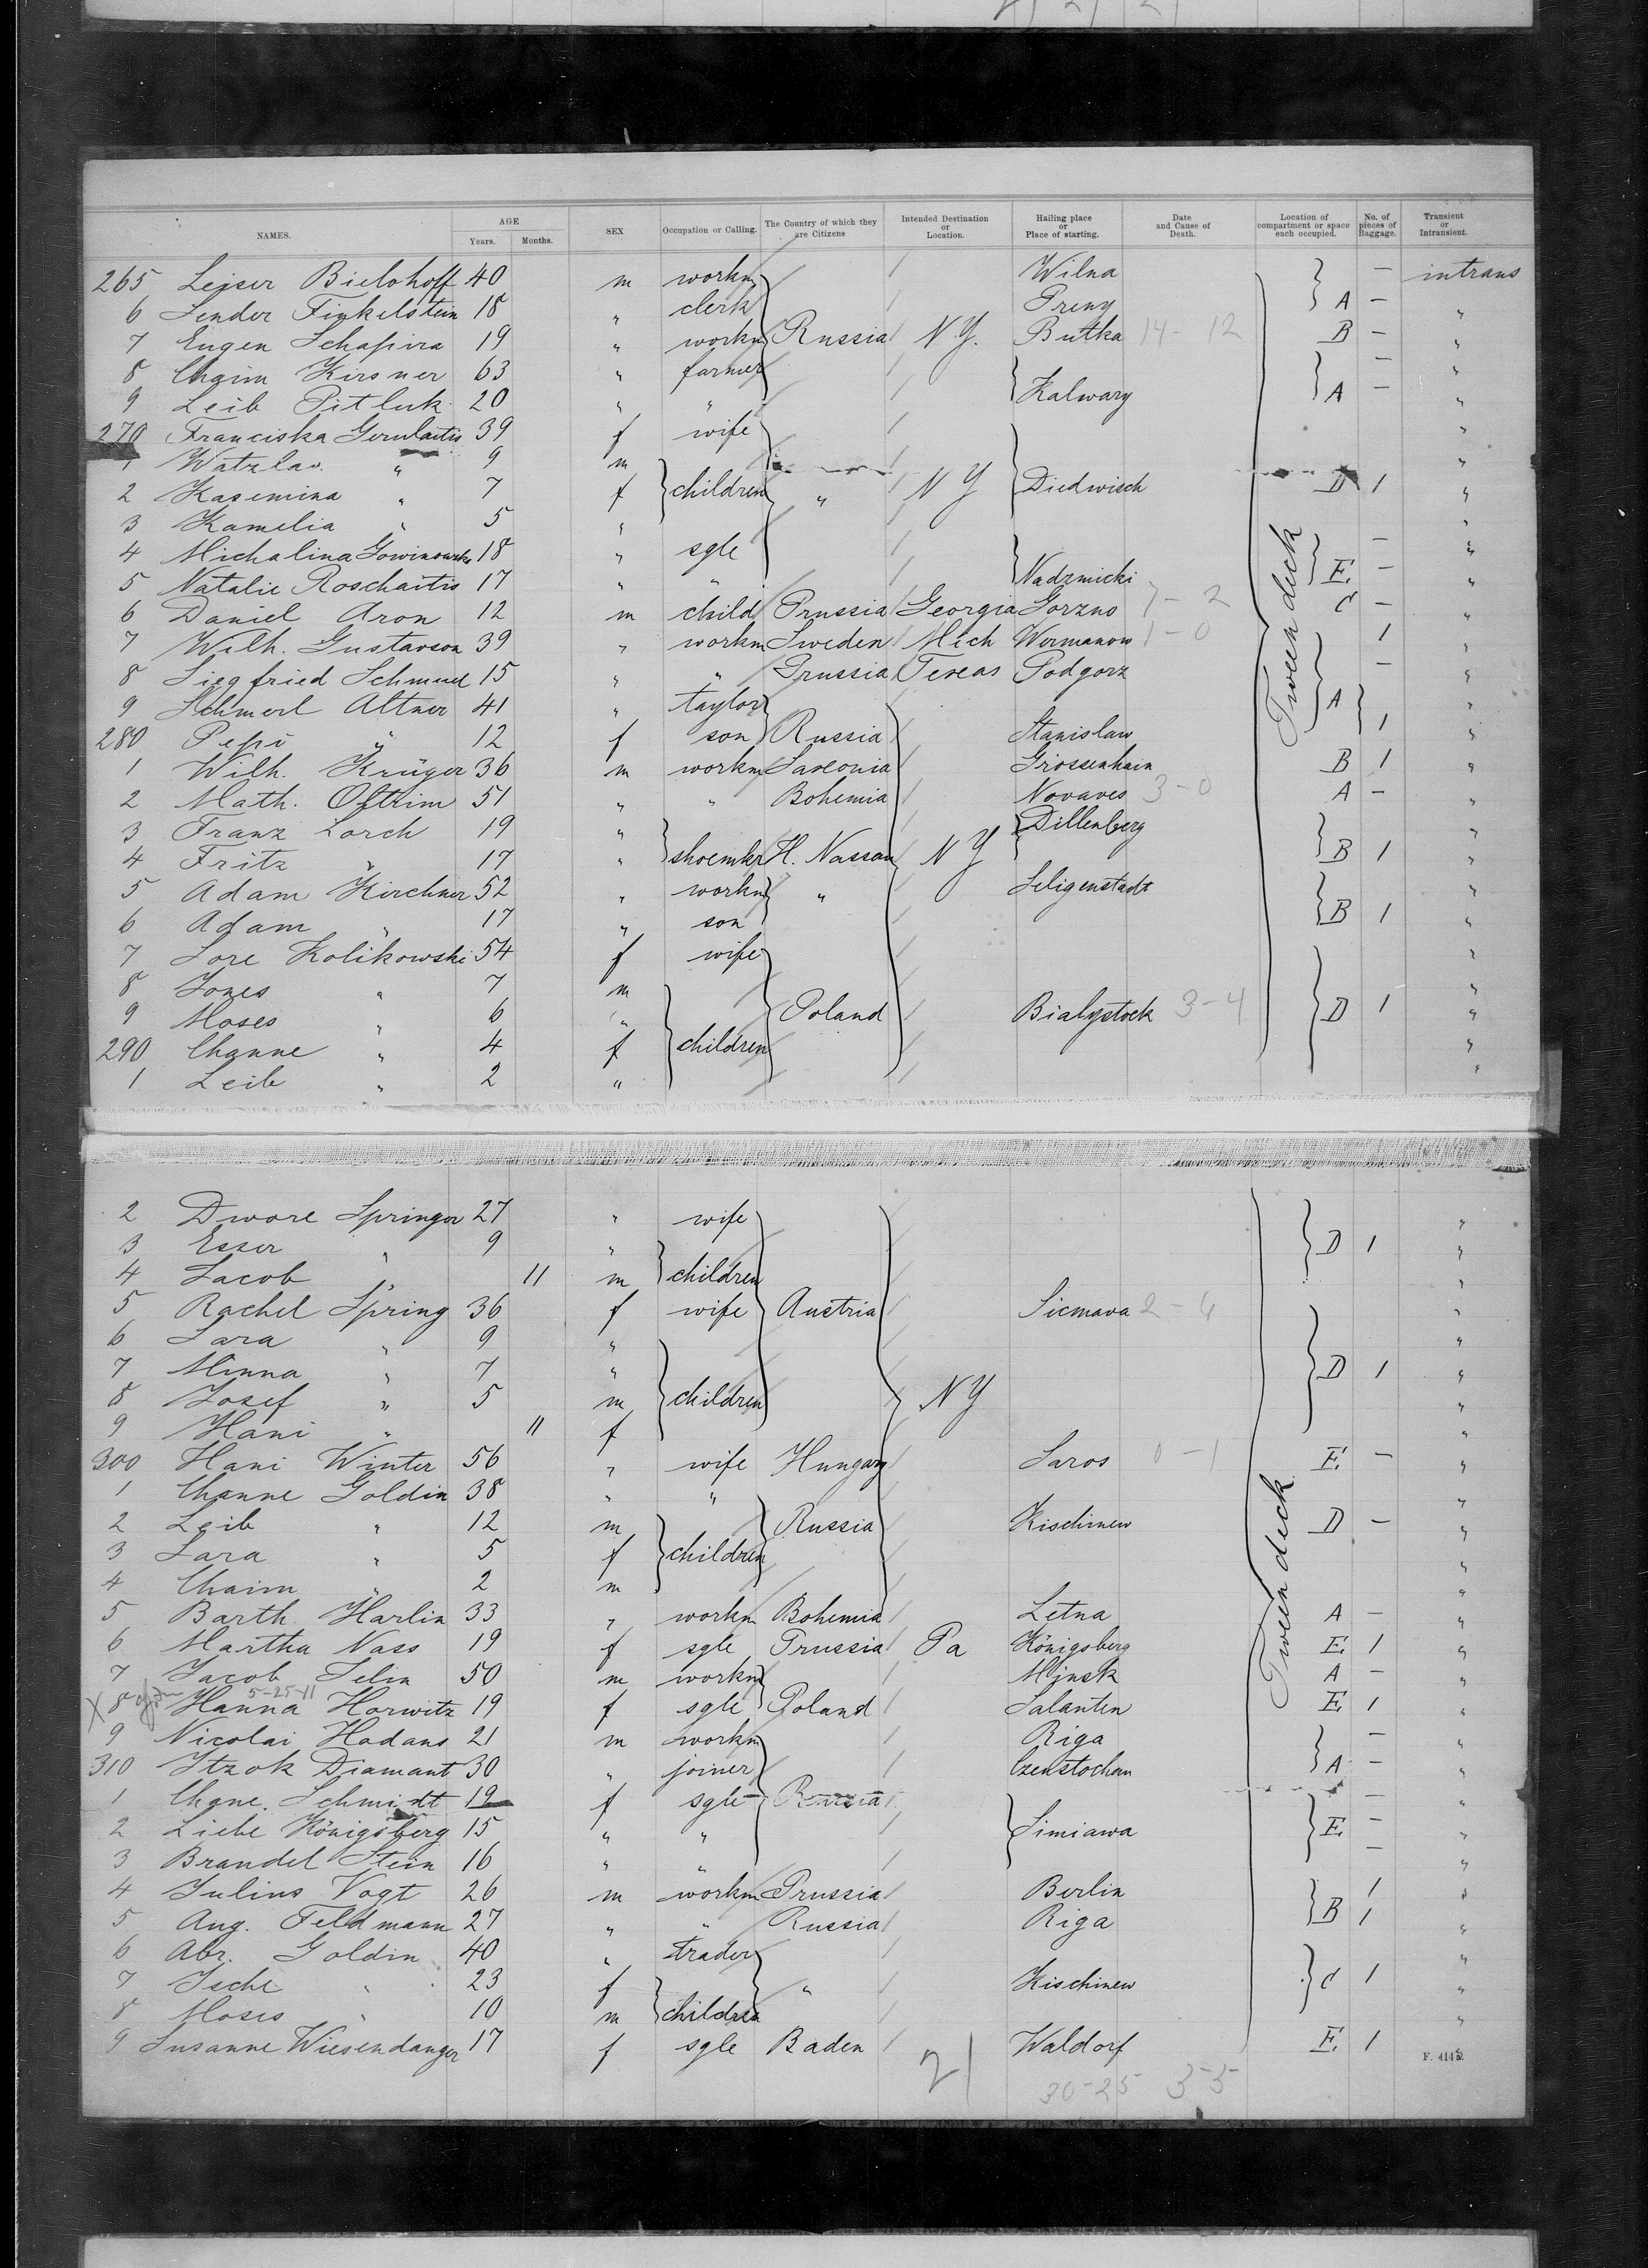 NAMES. AGE Years. Months. SEX Occupation or Calling. The Country of which they are Citizens Intended Destination or Location. Hailing place or Place of starting. Date and Cause of Death. Location of compartment or space each occupied. No. of pieces of Baggage. Transient or Intransient.
265 Leiser Bielohoff 40 m workm Wilna — intrans
6 Sender Finkelstein 18 " clerk Preny A — "
7 Eugen Schapira 19 " workm Russia N Y. Butka 14 - 12 B — "
8 Chaim Kirsner 63 " farmer — "
9 Leib Pitluk 20 " " Kalwary A — "
270 Franciska Gerulaitis 39 f wife "
1 Watzlav " 9 m "
2 Kasemina " 7 f children " N Y Diedwisch D 1 "
3 Kamelia " 5 " "
4 Michalina 18 " sgle — "
5 Natalie Roschaitis 17 " " Nadzmicki E. — "
6 Daniel Aron 12 m child Prussia Georgia Gorzno 7 - 2 C — "
7 Wilh. Gustavson 39 " workm Sweden Mich Wormanow 1 - 0 1 "
8 Siegfried Schmuel 15 " " Prussia Texas Podgorz — "
9 Schmerl Altner 41 " taylor A "
280 Pepi " 12 f son Russia Stanislaw 1 "
1 Wilh. Krüger 36 m workm Saxonia Grossenhain B 1 "
2 Math. 51 " " Bohemia Novaves 3 - 0 A — "
3 Franz Lorch 19 " Dillenberg "
4 Fritz " 17 " shoemkr H. Nassau N Y B 1 "
5 Adam Kirchner 52 " workm " Seligenstadt "
6 Adam " 17 " son B 1 "
7 Sore Kolikowski 54 f wife "
8 Jones " 7 m "
9 Moses " 6 " Poland Bialystock 3 - 4 D 1 "
290 Channe " 4 f children "
1 Leib " 2 " "
Tween deck
2 Dwore Springer 27 " wife "
3 Esser " 9 " D 1 "
4 Jacob " 11 m children "
5 Rachel Spring 36 f wife Austria Sicmava 2 - 6 "
6 Sara " 9 " "
7 Minna " 7 " D 1 "
8 Josef " 5 m children N Y "
9 Hani " 11 f "
300 Hani Winter 56 " wife Hungary Saros 0 - 1 E. — "
1 Channe Goldin 38 " " "
2 Leib " 12 m Russia Kischinew D — "
3 Sara " 5 f children "
4 Chaim " 2 m "
5 Barth. Harlin 33 " workm Bohemia Letna A — "
6 Martha Nass 19 f sgle Prussia Pa Königsberg E. 1 "
7 Jacob Selin 50 m workm Minsk A — "
5-25-11
X 8 Hanna Horwitz 19 f sgle Poland Salanten E. 1 "
9 Nicolai Hadans 21 m workm Riga — "
310 Itzok Diamant 30 " joiner Czenstochau A — "
1 Chane Schmidt 19 f sgle Russia — "
2 Liebe Königsberg 15 " " Simiawa E. — "
3 Brandel Stein 16 " " — "
4 Julius Vogt 26 m workm Prussia Berlin 1 "
5 Aug. Feldmann 27 " " Russia Riga B 1 "
6 Abr. Goldin 40 " trader "
7 Ische " 23 f " Kischinew C 1 "
8 Moses " 10 m children "
9 Susanne Wiesendanger 17 f sgle Baden Waldorf E. 1 "
Tween deck
F. 4145.
21 30-25 3-5